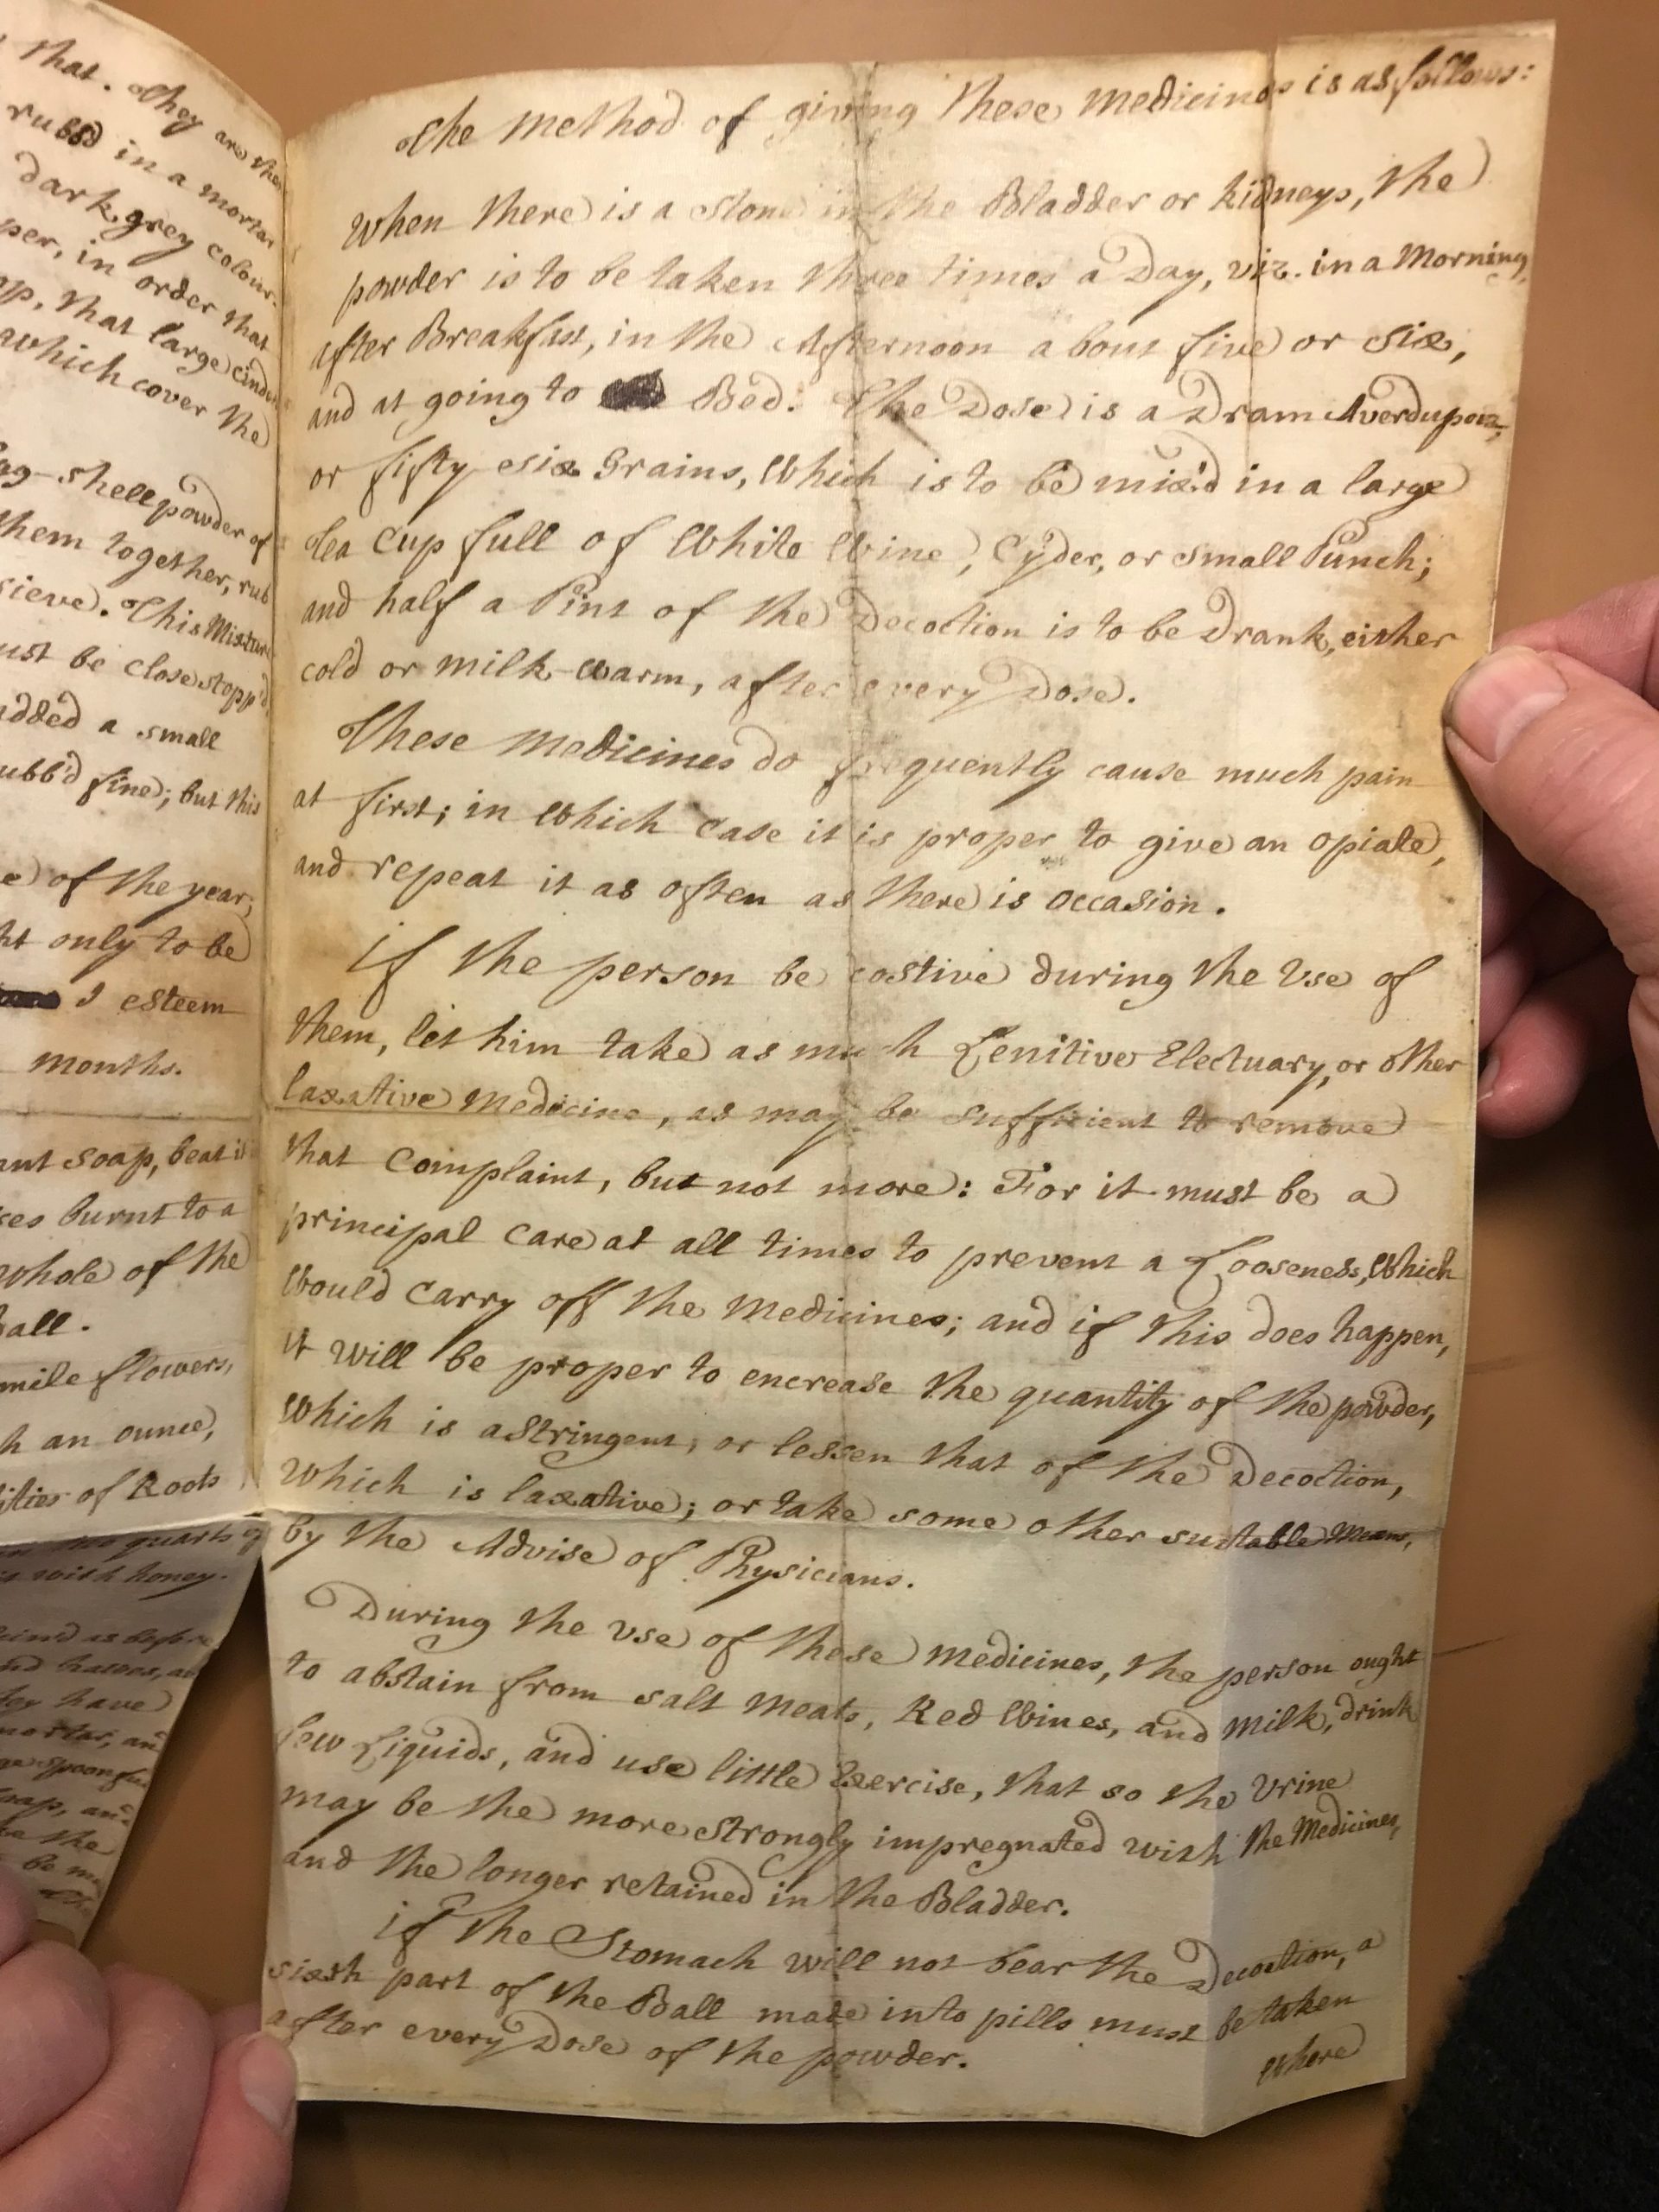 that. They are then
rubb'd in a mortar
dark grey colour.
per, in order that
that large cinders
which cover the
Egg-shell powder of
them together, rub
sieve. This Mixture
must be close stopp'd,
added a small
rubb'd fine; but this
of the year;
only to be
I esteem
months.
soap, beat it
burnt to a
whole of the
Ball.
flowers,
an ounce,
of Roots
quarts of
with honey.
as before
have
mortar, and
spoonfull
soap, and
the
be
The method of giving these medicines is as follows:
When there is a stone in the Bladder or Kidneys, the
powder is to be taken three times a Day, viz. in a Morning,
after Breakfast, in the Afternoon about five or six,
and at going to Bed. The Dose is a Dram Averdupois,
or fifty six Grains, Which is to be mix'd in a large
Tea Cup full of White Wine, Cyder, or small Punch;
and half a Pint of the Decoction is to be Drank, either
cold or milk-warm, after every Dose.
These medicines do frequently cause much pain
at first; in Which case it is proper to give an opiate,
and repeat it as often as there is occasion.
if the person be costive during the Use of
them, let him take as much Lenitive Electuary, or other
laxative Medicine, as may be sufficient to remove
that Complaint, but not more: For it must be a
principal Care at all times to prevent a Looseness, Which
Would Carry off the Medicines; and if this does happen,
it will be proper to encrease the quantity of the powder,
Which is astringent, or lessen that of the Decoction,
Which is laxative; or take some other suitable Means,
by the Advise of Physicians.
During the use of these medicines, the person ought
to abstain from salt meats, Red Wines, and milk, drink
few Liquids, and use little Exercise, that so the Urine
may be the more strongly impregnated with the Medicines,
and the longer retained in the Bladder.
if the Stomach will not bear the Decoction, a
sixth part of the Ball made into pills must be taken
after every Dose of the powder.
where